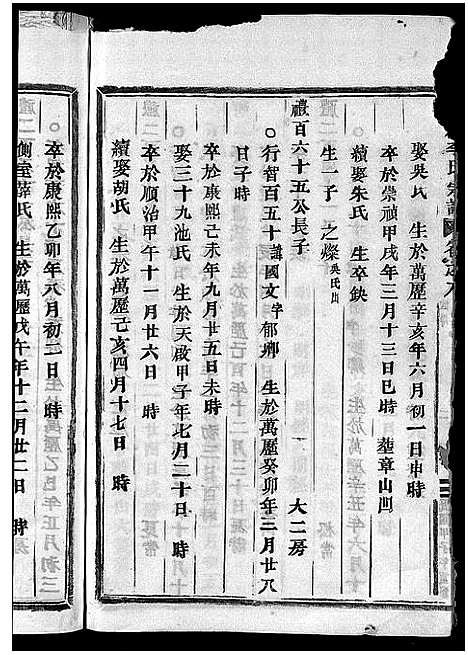 李氏宗譜 卷之八
娶吳氏 生於萬歷辛亥年六月初一日申時
卒於崇禎甲戌年三月十三日巳時 塟章山凹
續娶朱氏 生卒缺
生一子 之燦 吳氏出
禮百六十五公長子 大二房
行智百五十 諱國文 字郁卿 生於萬歷癸卯年三月廿八
日子時
卒於康熙己未年九月廿五日未時
娶三十九池氏 生於天啟甲子年七月二十日 時
卒於順治甲午十一月廿六日 時
續娶胡氏 生於萬歷己亥四月十七日 時
卒於康熙乙卯年六月初三日 時
側室蔣氏 生於萬歷戊午年十二月廿二日 時